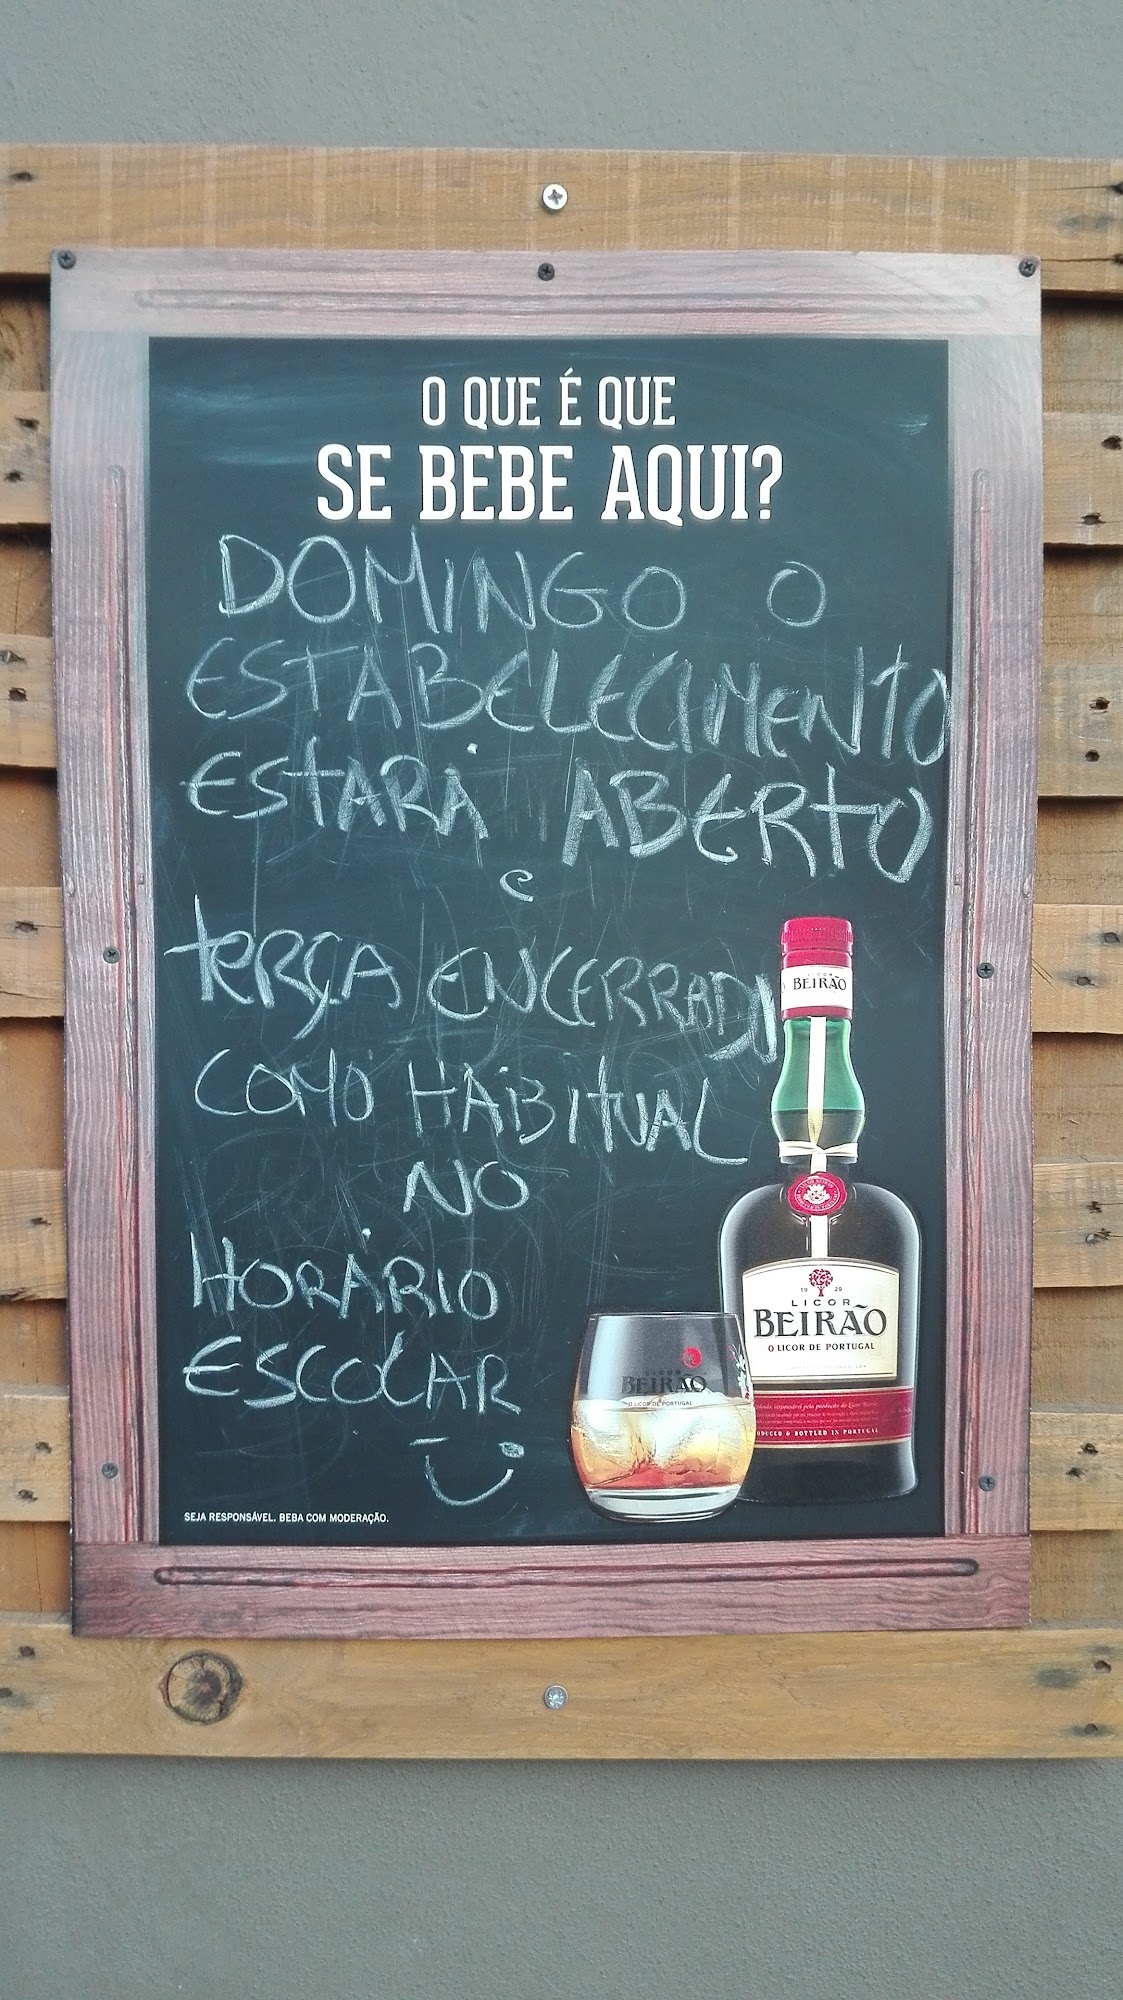 O QUE É QUE
SE BEBE AQUI?
DOMINGO O
ESTABELECIMENTO
ESTARÁ ABERTO
e
terÇA ENCERRADO
COMO HABITUAL
NO
HORÁRIO
ESCOLAR
LICOR
BEIRÃO
19 29
LICOR
BEIRÃO
O LICOR DE PORTUGAL
PRODUCED & BOTTLED IN PORTUGAL
LICOR
BEIRÃO
O LICOR DE PORTUGAL
SEJA RESPONSÁVEL. BEBA COM MODERAÇÃO.